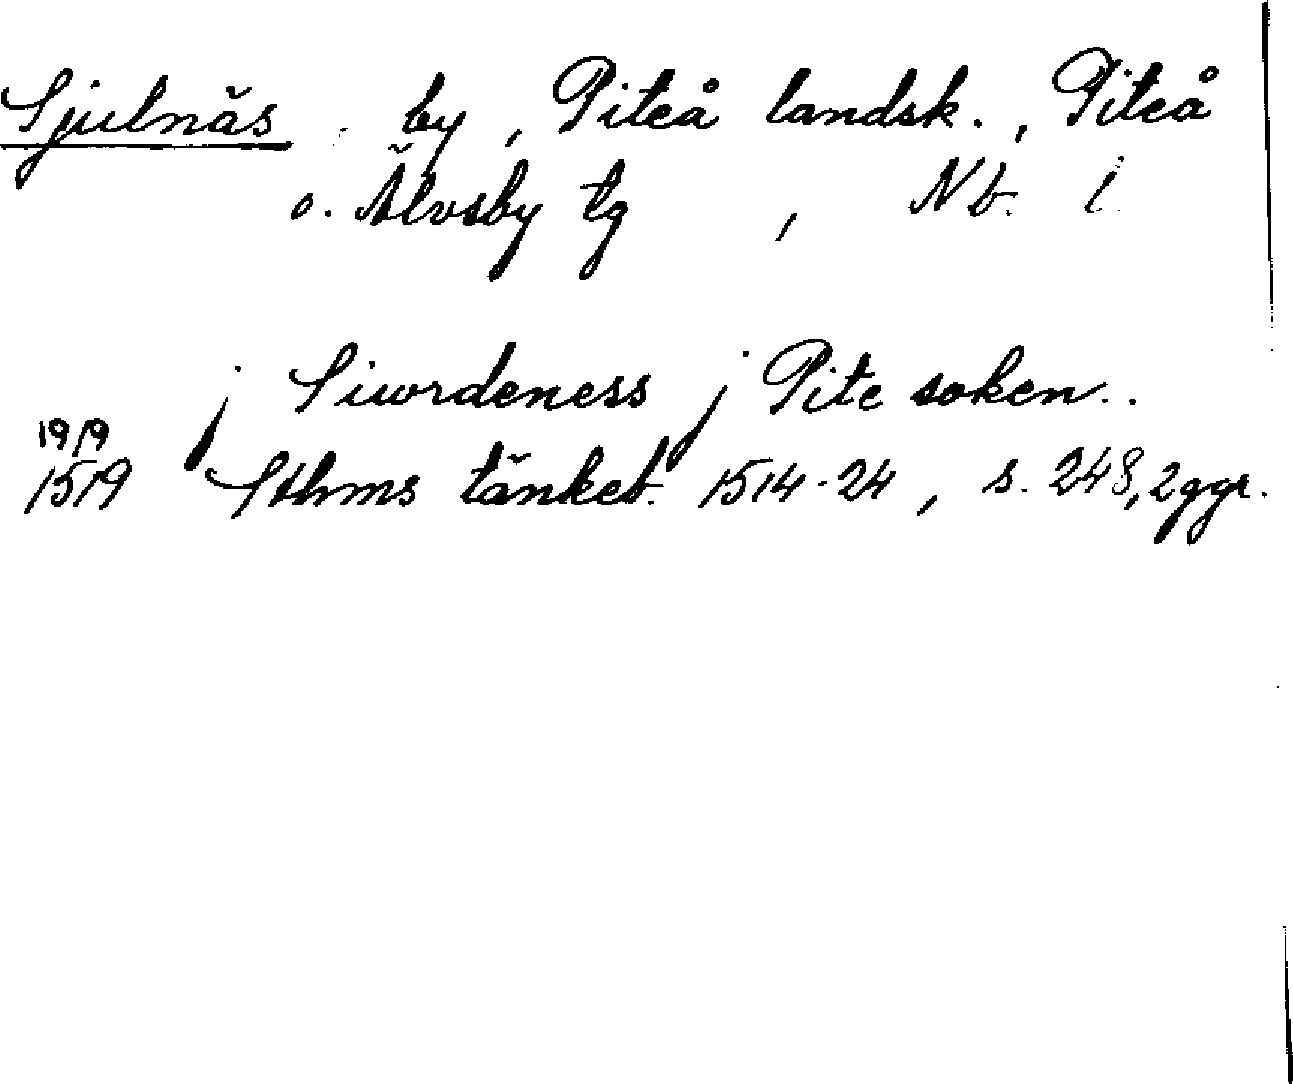 Sjulnäs. by, Piteå landsk., Piteå
o. Älvsby tg, Nb. l
j Siwordeness j Pite soken..
19/9
1519 Sthms tänkeb. 1514-24, s. 248, 2ggr.